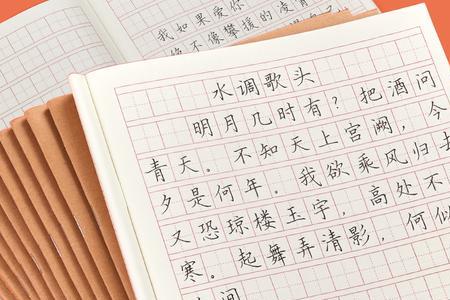 我如果爱你
绝不像攀援的凌霄
水调歌头
明月几时有？把酒问
青天。不知天上宫阙，今
夕是何年。我欲乘风归去
又恐琼楼玉宇，高处不
寒。起舞弄清影，何似